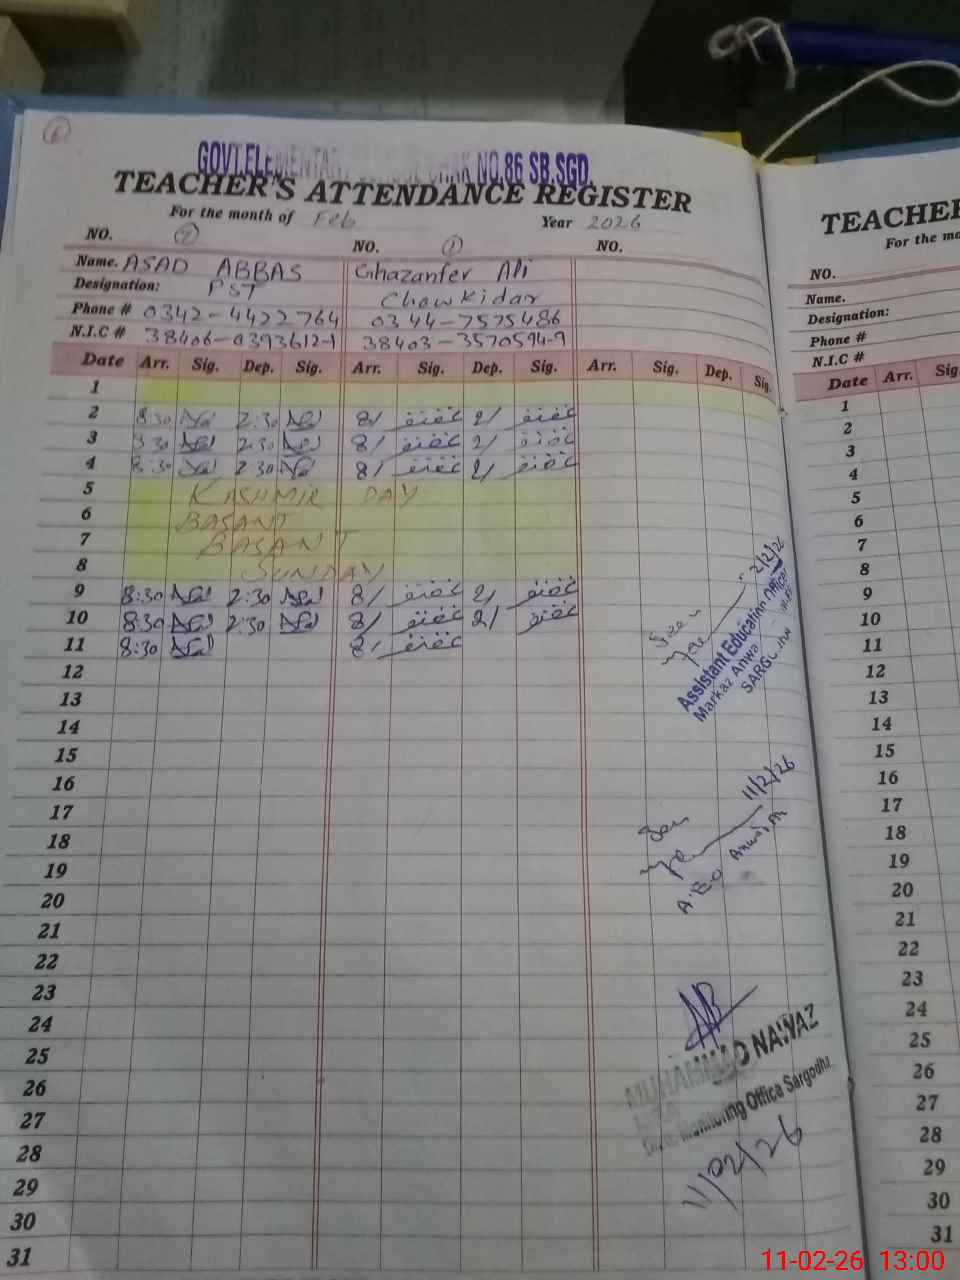 6
GOVT.ELEMENTAR CHAK NO.86 SB.SGD
TEACHER'S ATTENDANCE REGISTER
For the month of Feb Year 2026
NO. 9 NO. 1 NO.
Name. ASAD ABBAS Ghazanfer Ali
Designation: PST Chowkidar
Phone # 0342-4422764 0344-7575486
N.I.C # 38406-0393612-1 38403-3570594-9
Date Arr. Sig. Dep. Sig. Arr. Sig. Dep. Sig. Arr. Sig. Dep. Sig.
1
2 8:30 Asad 2:30 Asad 8/ غضنفر 2/ غضنفر
3 8:30 Asad 2:30 Asad 8/ غضنفر 2/ غضنفر
4 8:30 Asad 2:30 Asad 8/ غضنفر 2/ غضنفر
5 KASHMIR DAY
6 BASANT
7 BASANT
8 SUNDAY
9 8:30 Asad 2:30 Asad 8/ غضنفر 2/ غضنفر
10 8:30 Asad 2:30 Asad 8/ غضنفر 2/ غضنفر
11 8:30 Asad 8/ غضنفر
12
13
14
15
16
17
18
19
20
21
22
23
24
25
26
27
28
29
30
31
Seen
2/2/26
Assistant Education Officer
Markaz Anwa
SARG
11/2/26
A.E.O
MUHAMMAD NAWAZ
Monitoring Office Sargodha
11/02/26
TEACHE
For the mo
NO.
Name.
Designation:
Phone #
N.I.C #
Date Arr. Sig
1
2
3
4
5
6
7
8
9
10
11
12
13
14
15
16
17
18
19
20
21
22
23
24
25
26
27
28
29
30
31
11-02-26 13:00